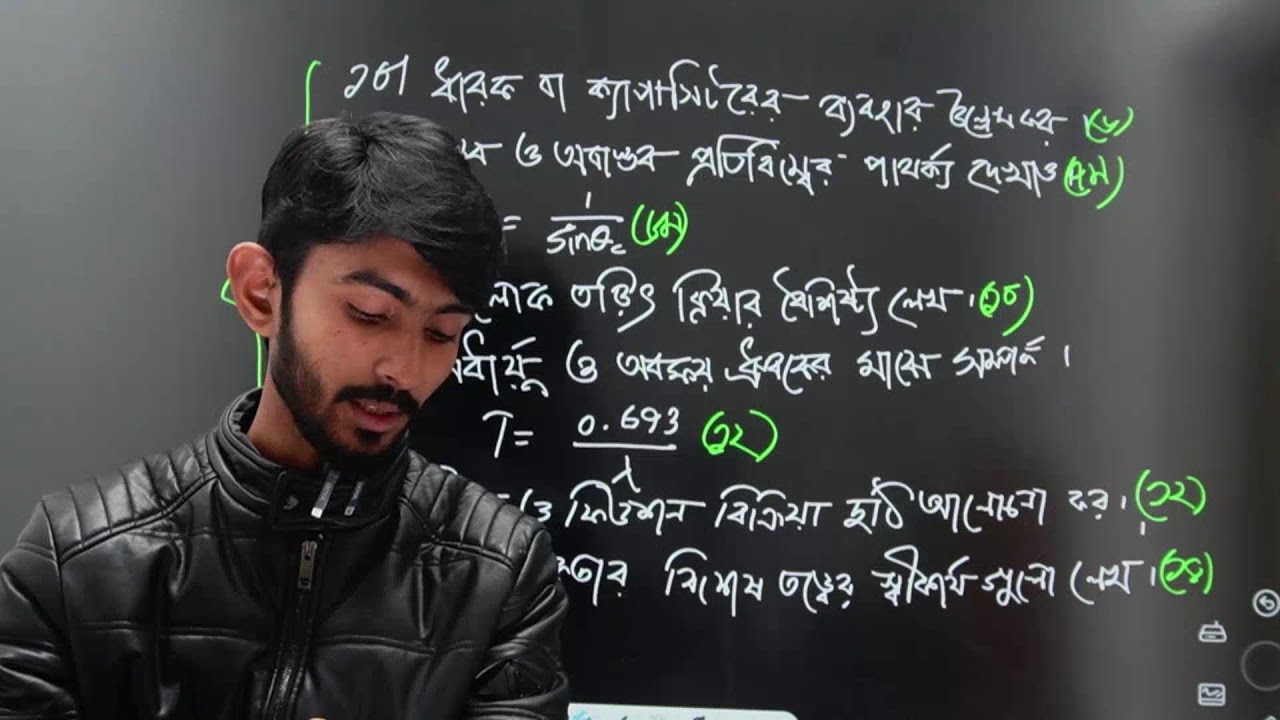 ১০। ধারক বা ক্যাপাসিটরের ব্যবহার উল্লেখ কর। (৬)
ও অবাস্তব প্রতিবিম্বের পার্থক্য দেখাও (৭ম)
= 1/sinθc (৮ম)
লোক তড়িৎ ক্রিয়ার বৈশিষ্ট্য লেখ। (১০)
ও অবক্ষয় ধ্রুবকের মাঝে সম্পর্ক।
T = 0.693/λ (১২)
ও ফিউশন বিক্রিয়া দুটি আলোচনা কর। (১২)
বিশেষ তত্ত্বের স্বীকার্য গুলো লেখ। (১৪)